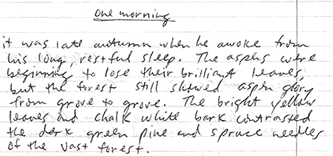 one morning
it was late autumn when he awoke from
his long, restful sleep. The aspens were
beginning to lose their brilliant leaves,
but the forest still showed aspen glory
from grove to grove. The bright yellow
leaves and chalk white bark contrasted
the dark green pine and spruce needles
of the vast forest.